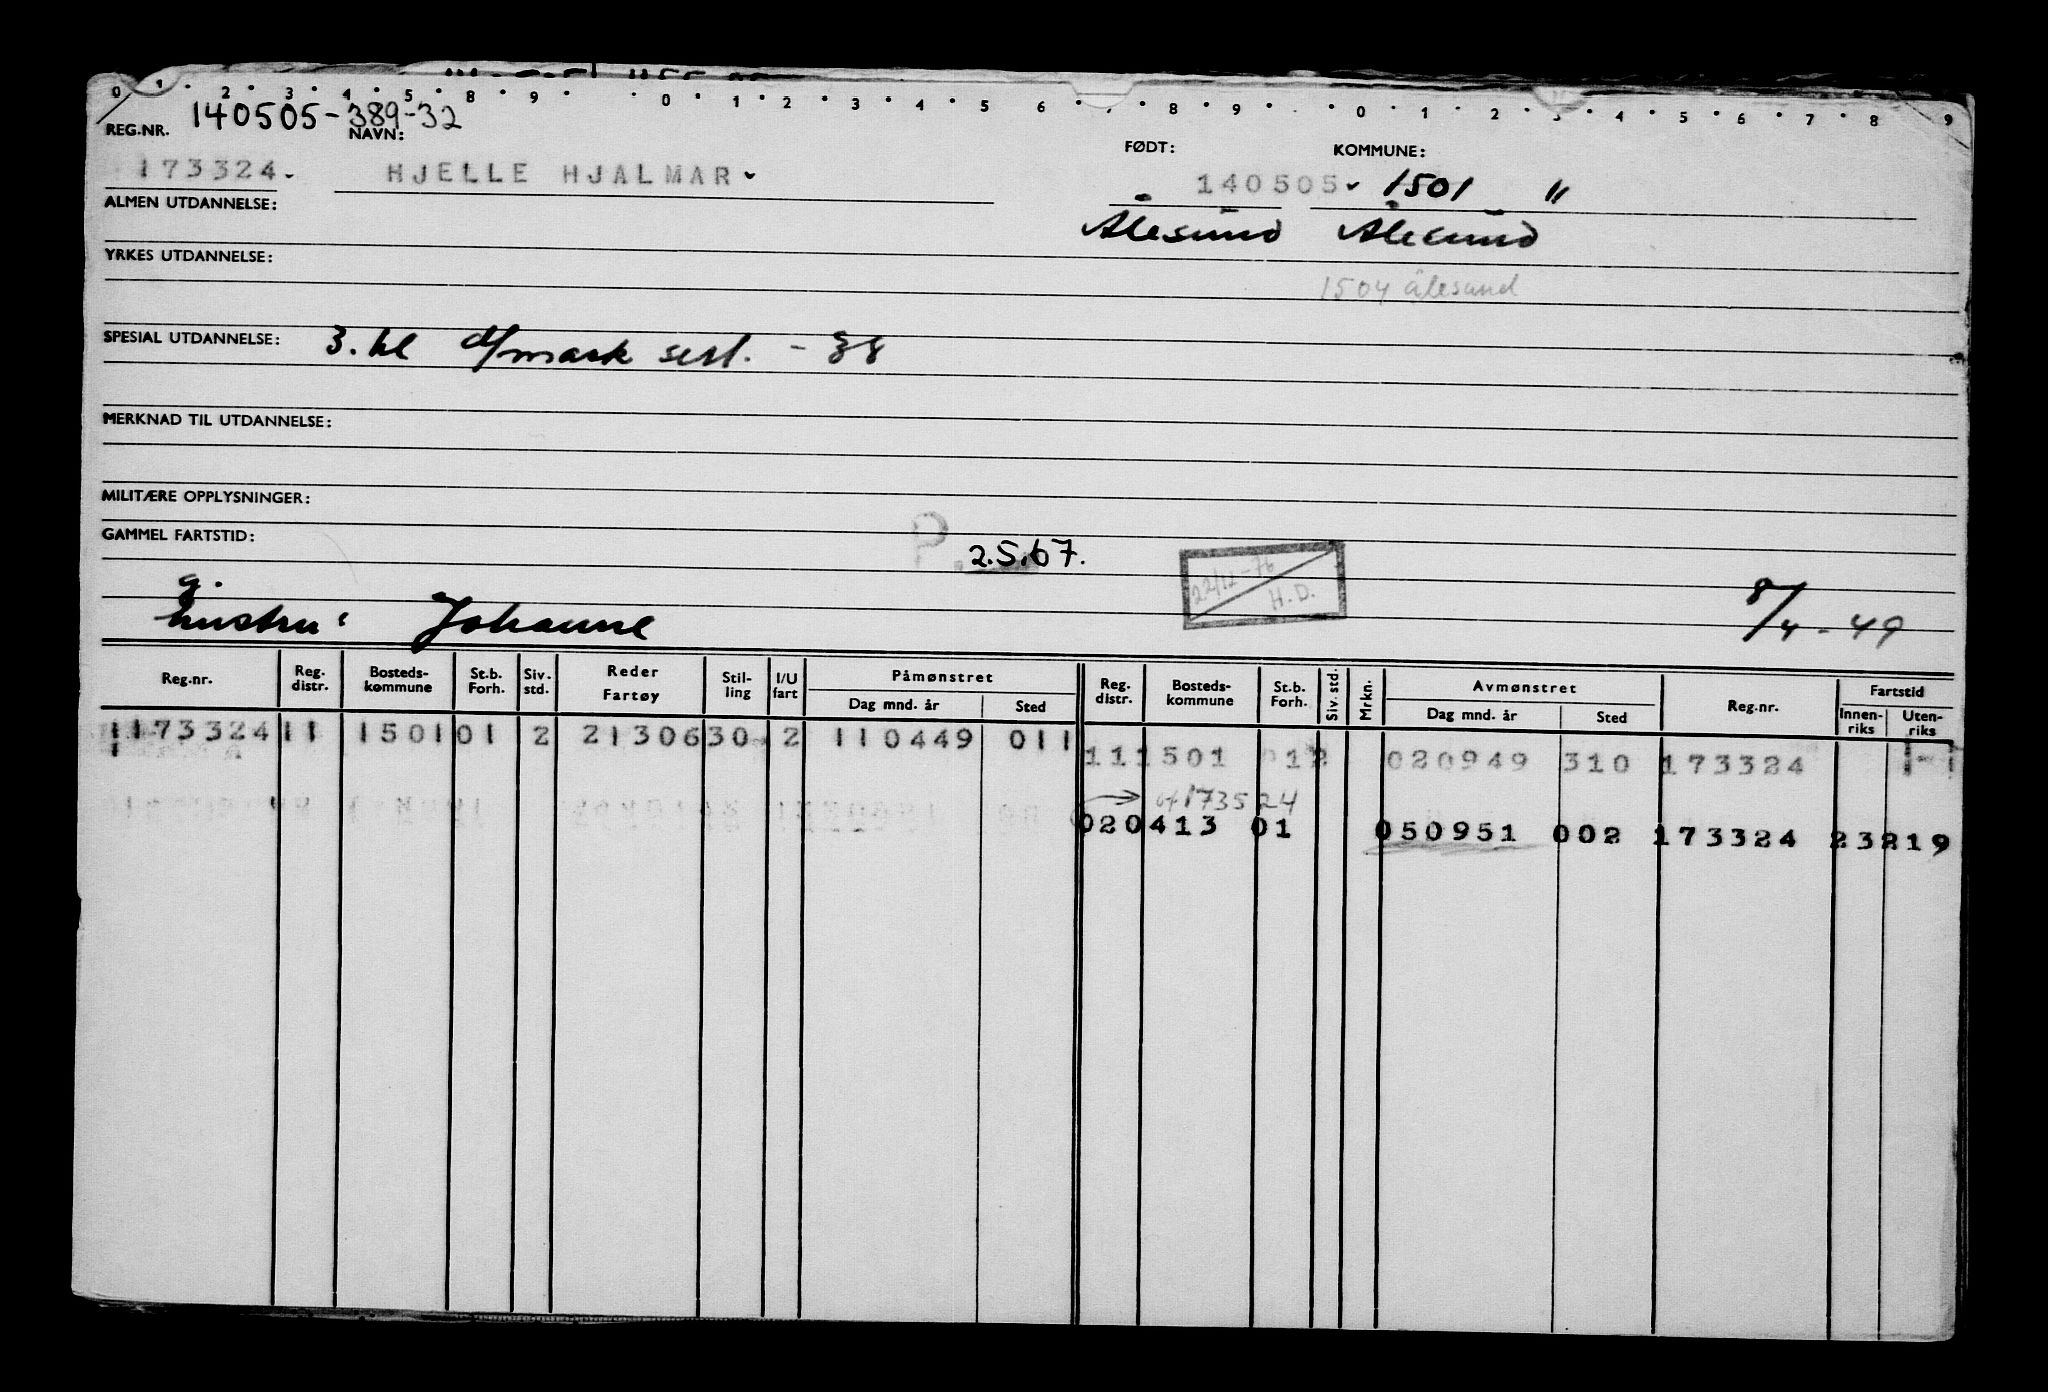 0 1 2 3 4 5 8 9 0 1 2 3 4 5 6 8 9 0 1 2 3 4 5 6 7 8 9
140505-389-32
REG.NR. NAVN: FØDT: KOMMUNE:
173324 HJELLE HJALMAR 140505 1501 "
ALMEN UTDANNELSE: Ålesund Ålesund
YRKES UTDANNELSE:
1504 Ålesund
SPESIAL UTDANNELSE: 3. kl d/mask sert. - 38
MERKNAD TIL UTDANNELSE:
MILITÆRE OPPLYSNINGER:
GAMMEL FARTSTID:
P 2.5.67.
22/12-76 H.D.
g.
hustru: Johanne 8/4-49
Reg.nr. Reg. distr. Bosteds-kommune St.b. Forh. Siv. std. Reder Fartøy Stil-ling I/U fart Påmønstret Dag mnd. år Sted Reg. distr. Bosteds-kommune St.b. Forh. Siv. std. Mrkn. Avmønstret Dag mnd. år Sted Reg.nr. Fartstid Innen-riks Uten-riks
1173324 11 1501 01 2 21306 30 2 110449 011
11 1501 012 020949 310 173324
173524
020413 01 050951 002 173324 23219